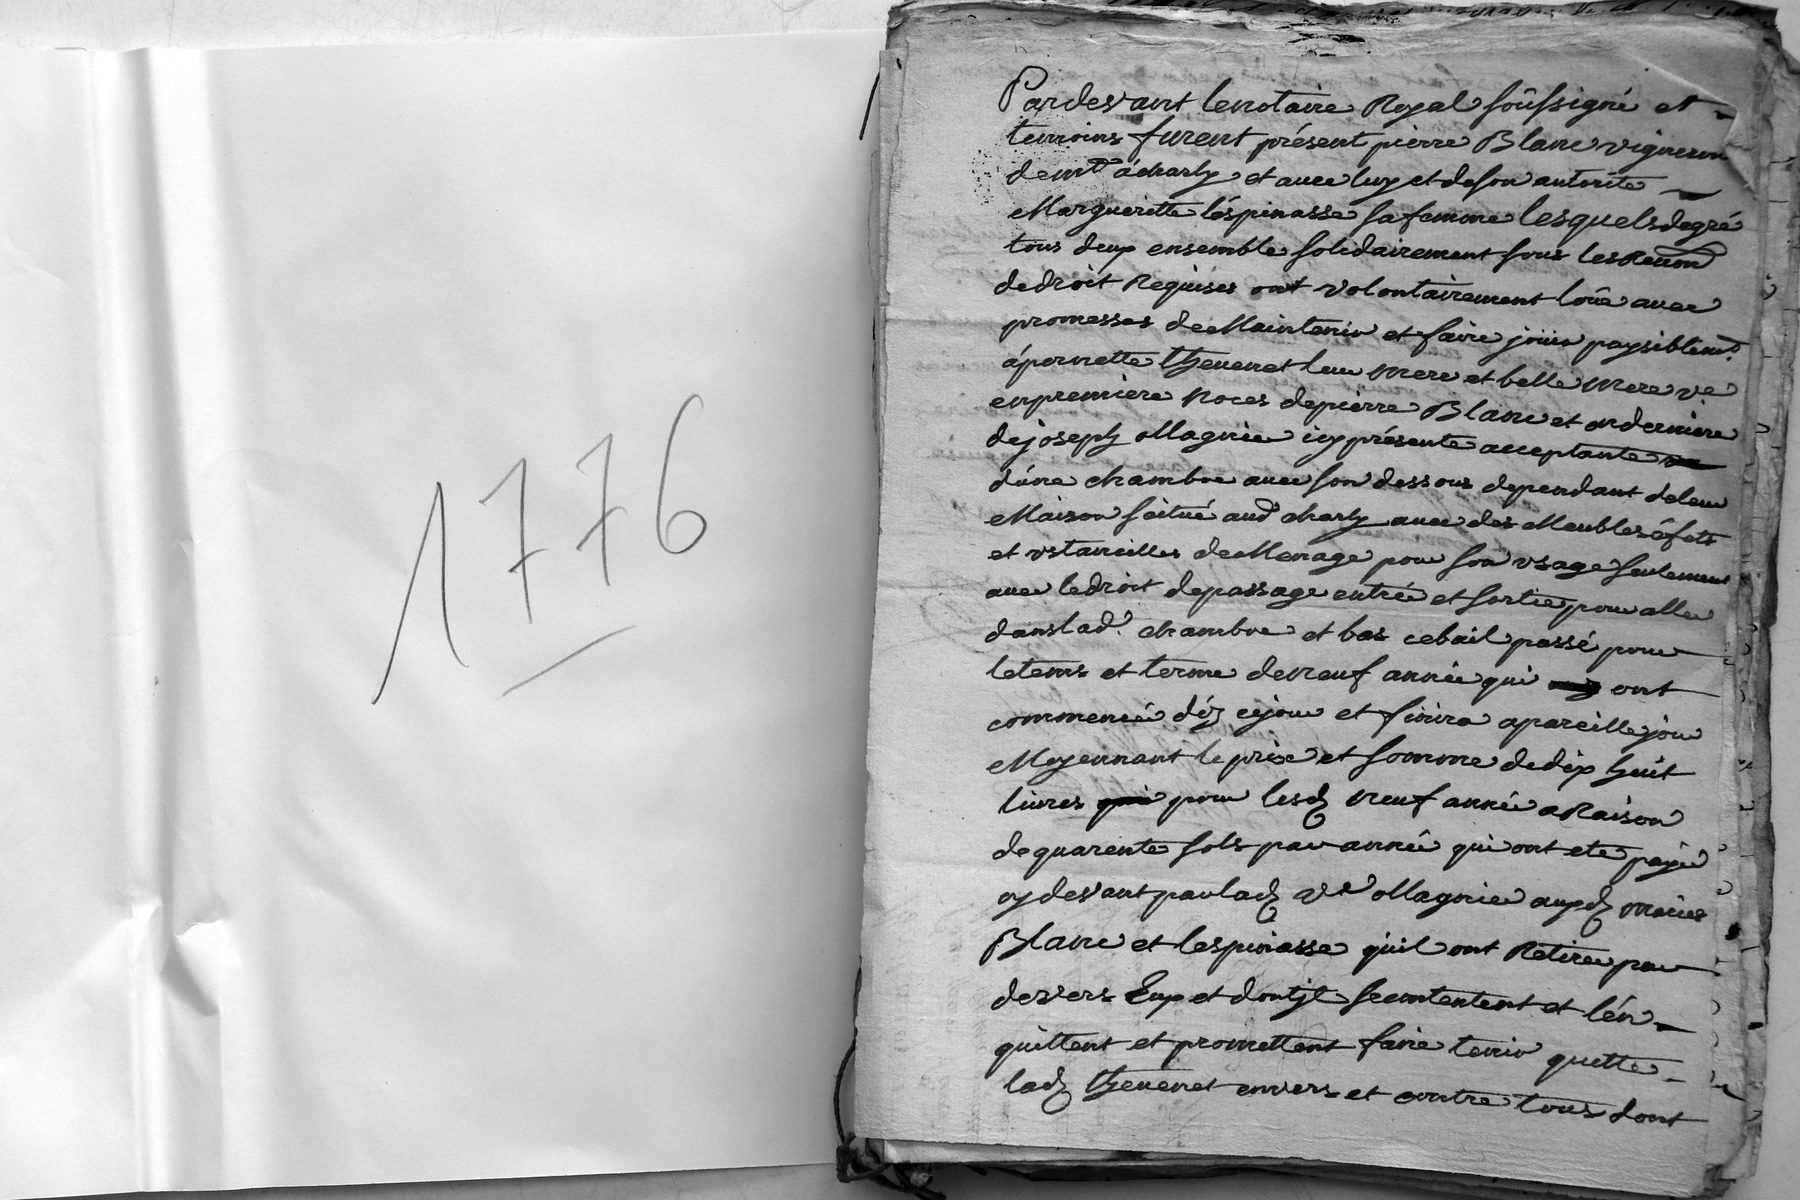 1776
Pardevant le notaire Royal soûssigné et
temoins furent présent pierre Blanc vigneron
demt. á charly et avec luy et de son autorité
Margueritte léspinasse sa femme lesquels de gré
tous deux ensemble solidairement sous les Renon
de droit Requises ont volontairement loüé avec
promesses de Maintenir et faire joüir paysiblemt.
á pernette thevenet leur mere et belle mere ve
en premiere noces de pierre Blanc et en derniere
de joseph ollagnier icy présente acceptante
d'une chambre avec son dessous dependant de leur
Maison scitué aud charly avec des Meubles éfets
et ustancilles de Menage pour son usage seulement
avec le droit de passage entrée et sortie pour aller
dans lad. chambre et bas ce bail passé pour
le tems et terme de neuf année qui ont
commencé déz ce jour et finira a pareille jour
Moyennant le prix et somme de dix huit
livres pour lesd neuf année a Raison
de quarente sols par année qui ont ete payé
cy devant par lad ve ollagnier auxd mariés
Blanc et lespinasse quil ont Retiré par
devers Eux et dont jl se contentent et l'én
quittent et promettent faire tenir quitte
lad thevenet envers et contre tous dont